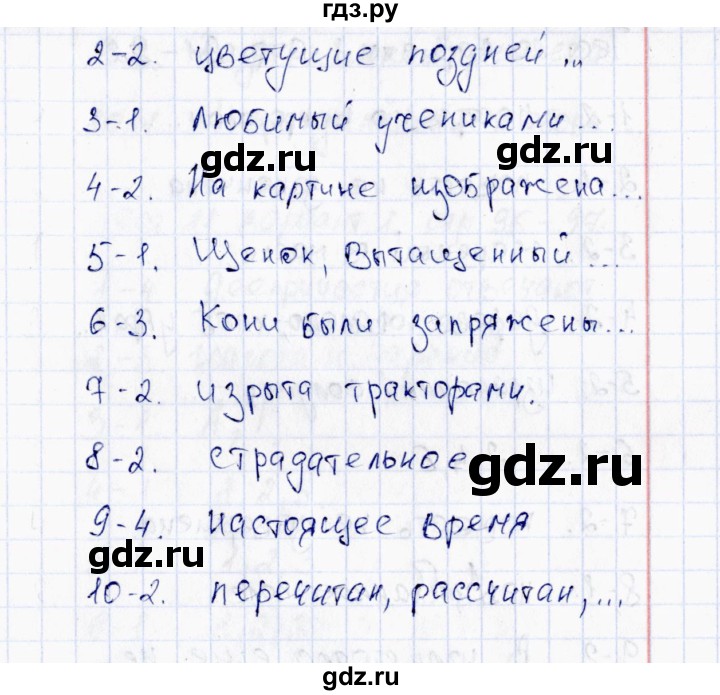 гдз.ру
2-2. цветущие поздней...
3-1. Любимый учениками...
gdz.ru
gdz.ru
4-2. На картине изображена...
5-1. Щенок, вытащенный...
6-3. Кони были запряжены...
gdz.ru
7-2. изрыта тракторами.
8-2. страдательное
gdz.ru
9-4. Настоящее время
gdz.ru
10-2. перечитан, рассчитан,...
gdz.ru